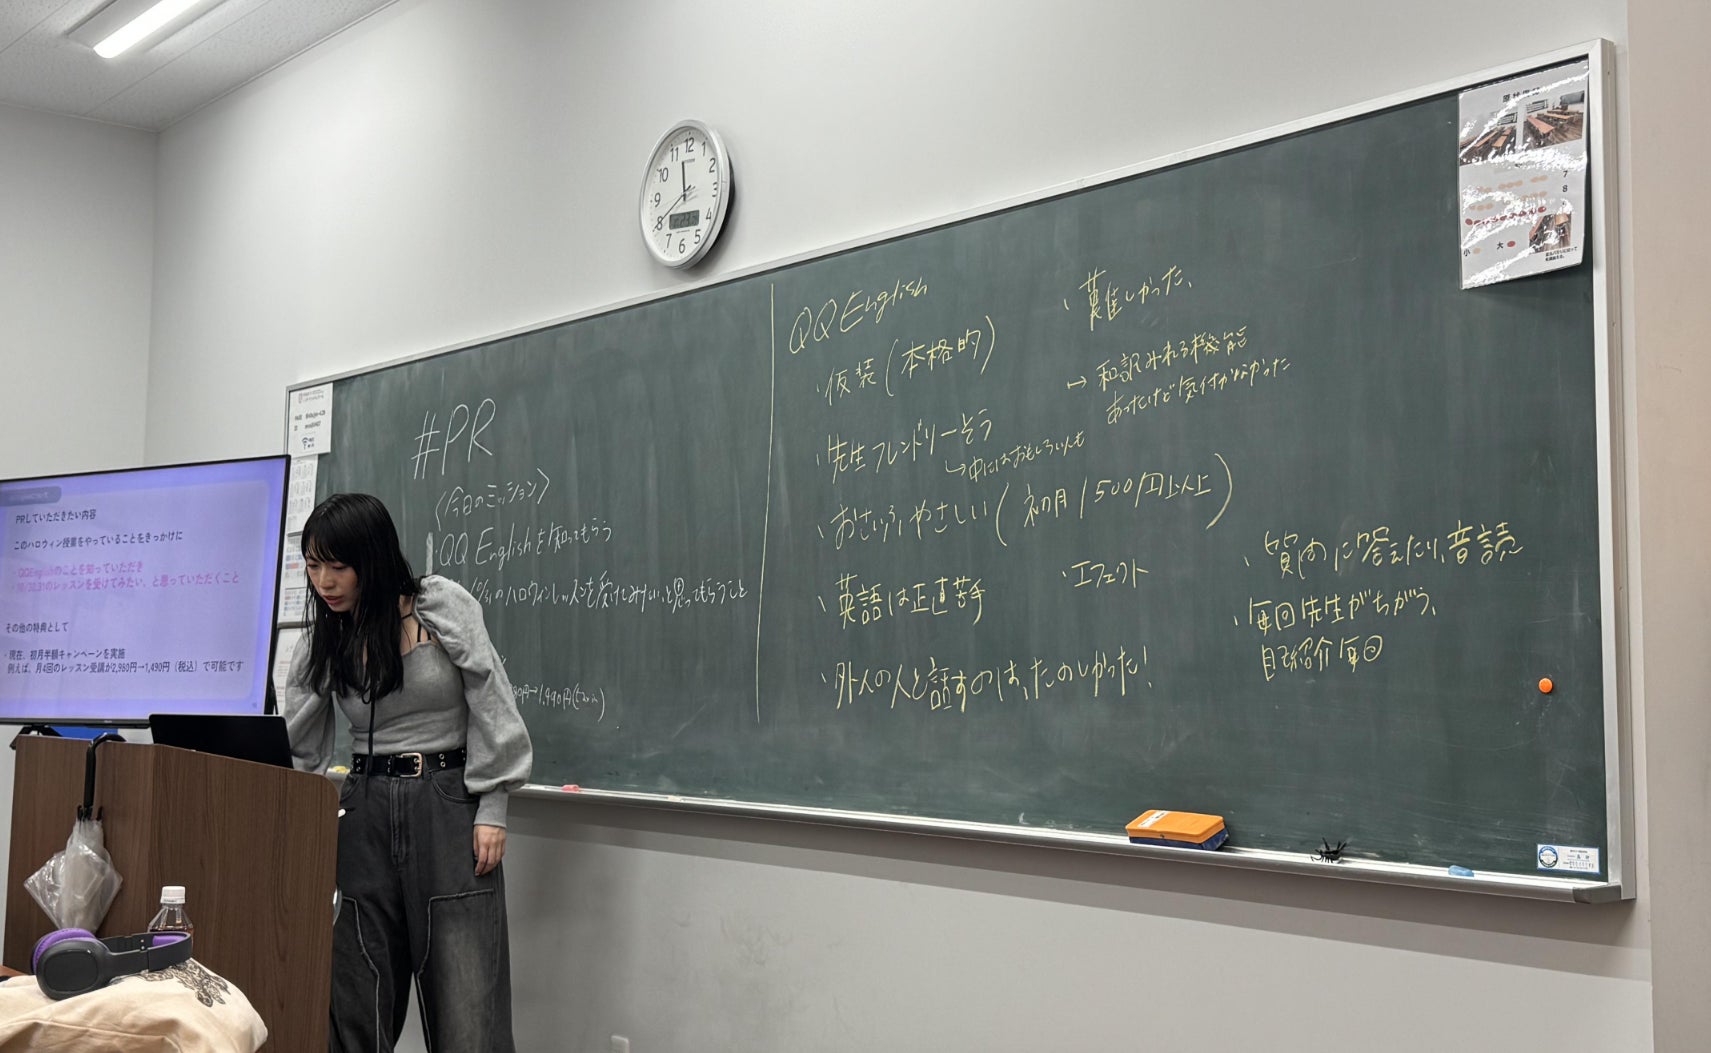 PRしていただきたい内容
このハロウィン授業をやっていることをきっかけに
・QQEnglishのことを知っていただき
のレッスンを受けてみたい、と思っていただくこと
その他の特典として
・現在、初月半額キャンペーンを実施
例えば、月4回のレッスン受講が2,980円→1,490円（税込）で可能です
#PR
〈今日のミッション〉
・QQ Englishを知ってもらう
のハロウィンレッスンを受けてみたい、と思ってもらうこと
80円→1,490円(税込)
QQ English
・仮装(本格的)
・先生フレンドリーそう
↳中にはおもしろい人も
・おさいふやさしい(初月1500円以上)
・英語は正直苦手
・エフェクト
・外人の人と話すのは、たのしかった!
・難しかった、
→和訳みれる機能
あったけど気付かなかった
・質問に答えたり、音読
・毎回先生がちがう、
自己紹介毎回
11 12 1
10 2
9 3
8 4
7 6 5
7
8
小 大